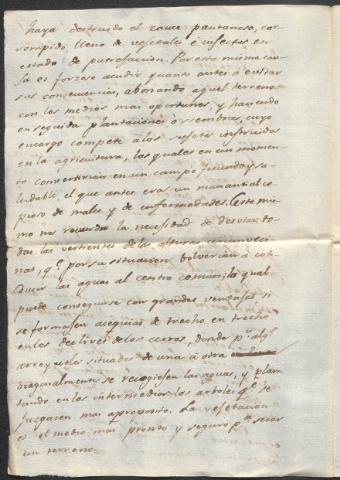 haya destruido el cauce pantanoso, cor-
rompido, lleno de vejetales é insectos en
estado de putrefaccion. Por esta misma cau-
sa es forzoso acudir quanto antes á evitar
sus consecuencias, abonando aquel terreno
con los medios mas oportunos, y haciendo
en seguida plantaciones ó siembras, cuyo
encargo compete á los sujetos instruidos
en la agricultura, los quales en un momen-
to convertirian en un campo fecundo y sa-
ludable, el que antes era un manantial co-
pioso de males y de enfermedades. Esto mis-
mo nos recuerda la necesidad de desviar to-
das las vertientes de las alturas circunveci-
nas, q.e por su situacion, bolverian á con-
ducir las aguas al centro comun; lo qual
puede conseguirse con grandes ventajas si
se formasen acequias de trecho en trecho
en los declives de los cerros, donde p.r alg.s
arroyuelos situados de una á otra
diagonalmente se recogiesen las aguas, y plan-
tando en los intermedios los arboles q.e se
juzgasen mas aproposito. La vejetacion
es el medio mas pronto y seguro p.a secar
un terreno.